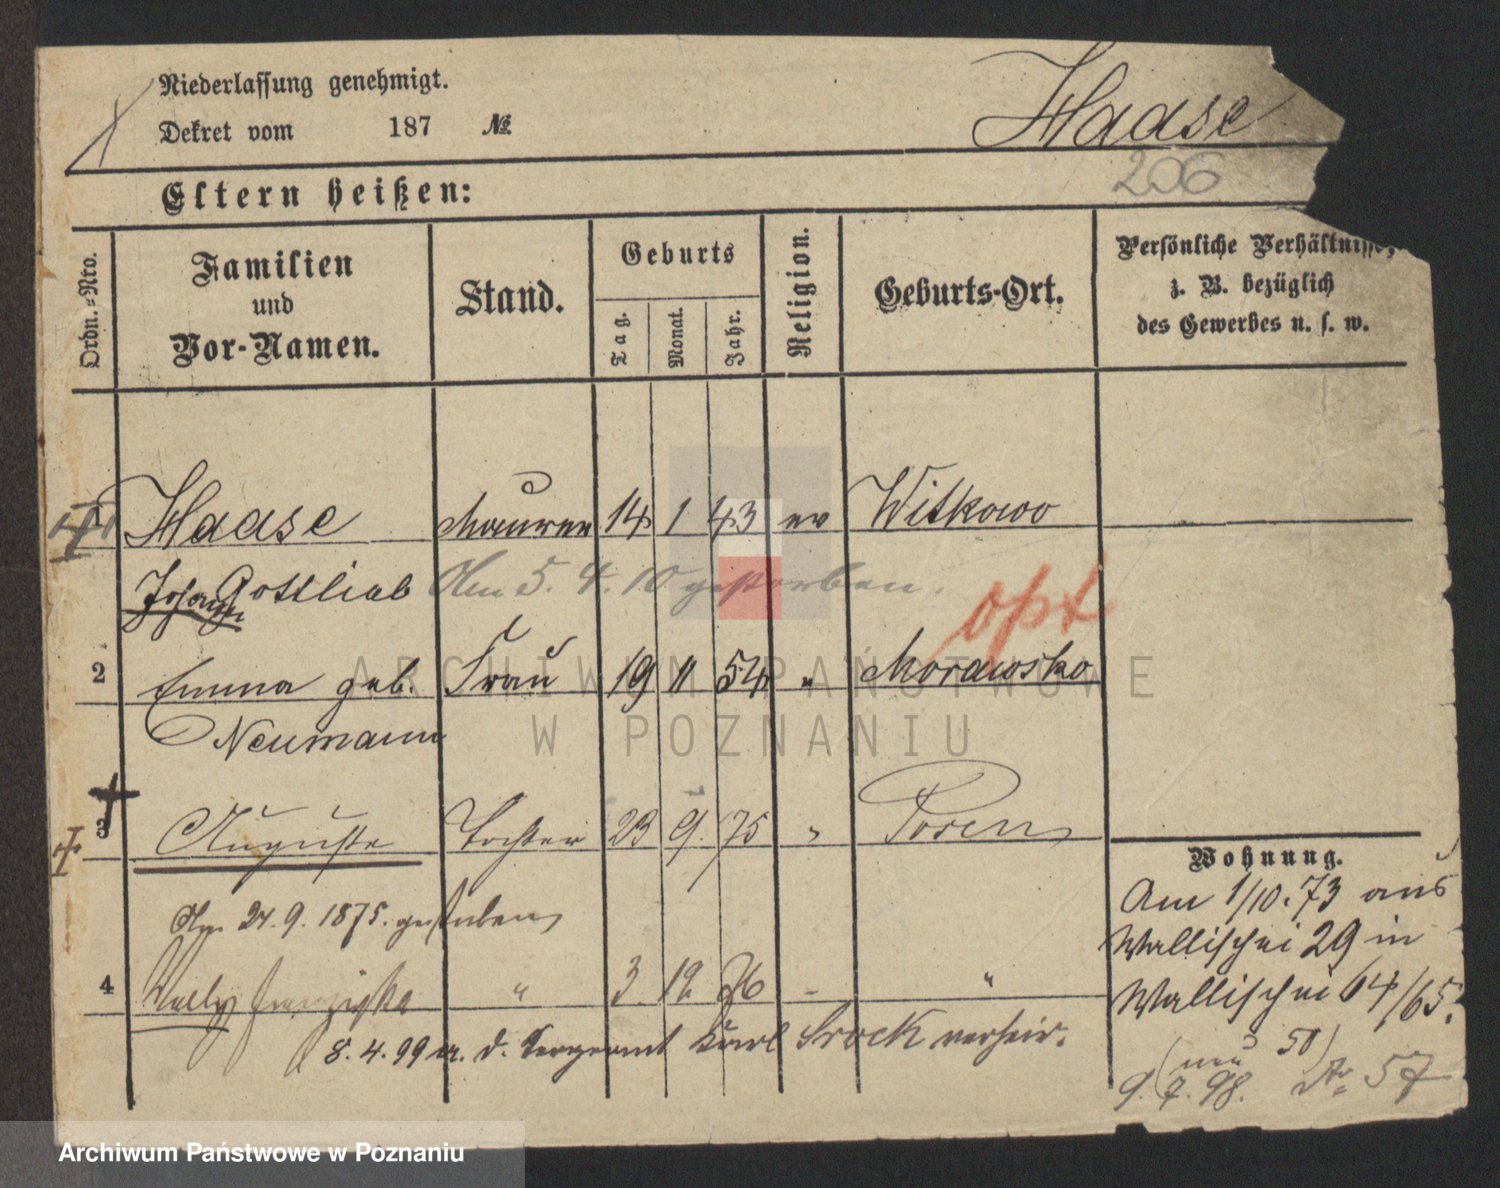 Niederlassung genehmigt.
Dekret vom 187 №
Haase
206
Eltern heißen:
Ordn.-Nro.
Familien
und
Vor-Namen.
Stand.
Geburts
Tag.
Monat.
Jahr.
Religion.
Geburts-Ort.
Persönliche Verhältnisse,
z. B. bezüglich
des Gewerbes u. s. w.
1 Haase Maurer 14 1 43 ev Witkowo
Johann Gottlieb Am 5. 4. 10 gestorben.
opt
2 Emma geb. Frau 19 11 54 " Morawsko
Neumann
3 Auguste Tochter 23 9. 75 " Posen
Am 24. 9. 1875. gestorben
4 Wally Franziska " 3. 12. 76 - "
8. 4. 99 m. d. Sergeant Karl Brock verheir.
Wohnung.
Am 1/10. 73 aus
Wallischei 29 in
Wallischei 64/65.
(neu 50)
9. 7. 98. No 57
ARCHIWUM PAŃSTWOWE
W POZNANIU
Archiwum Państwowe w Poznaniu